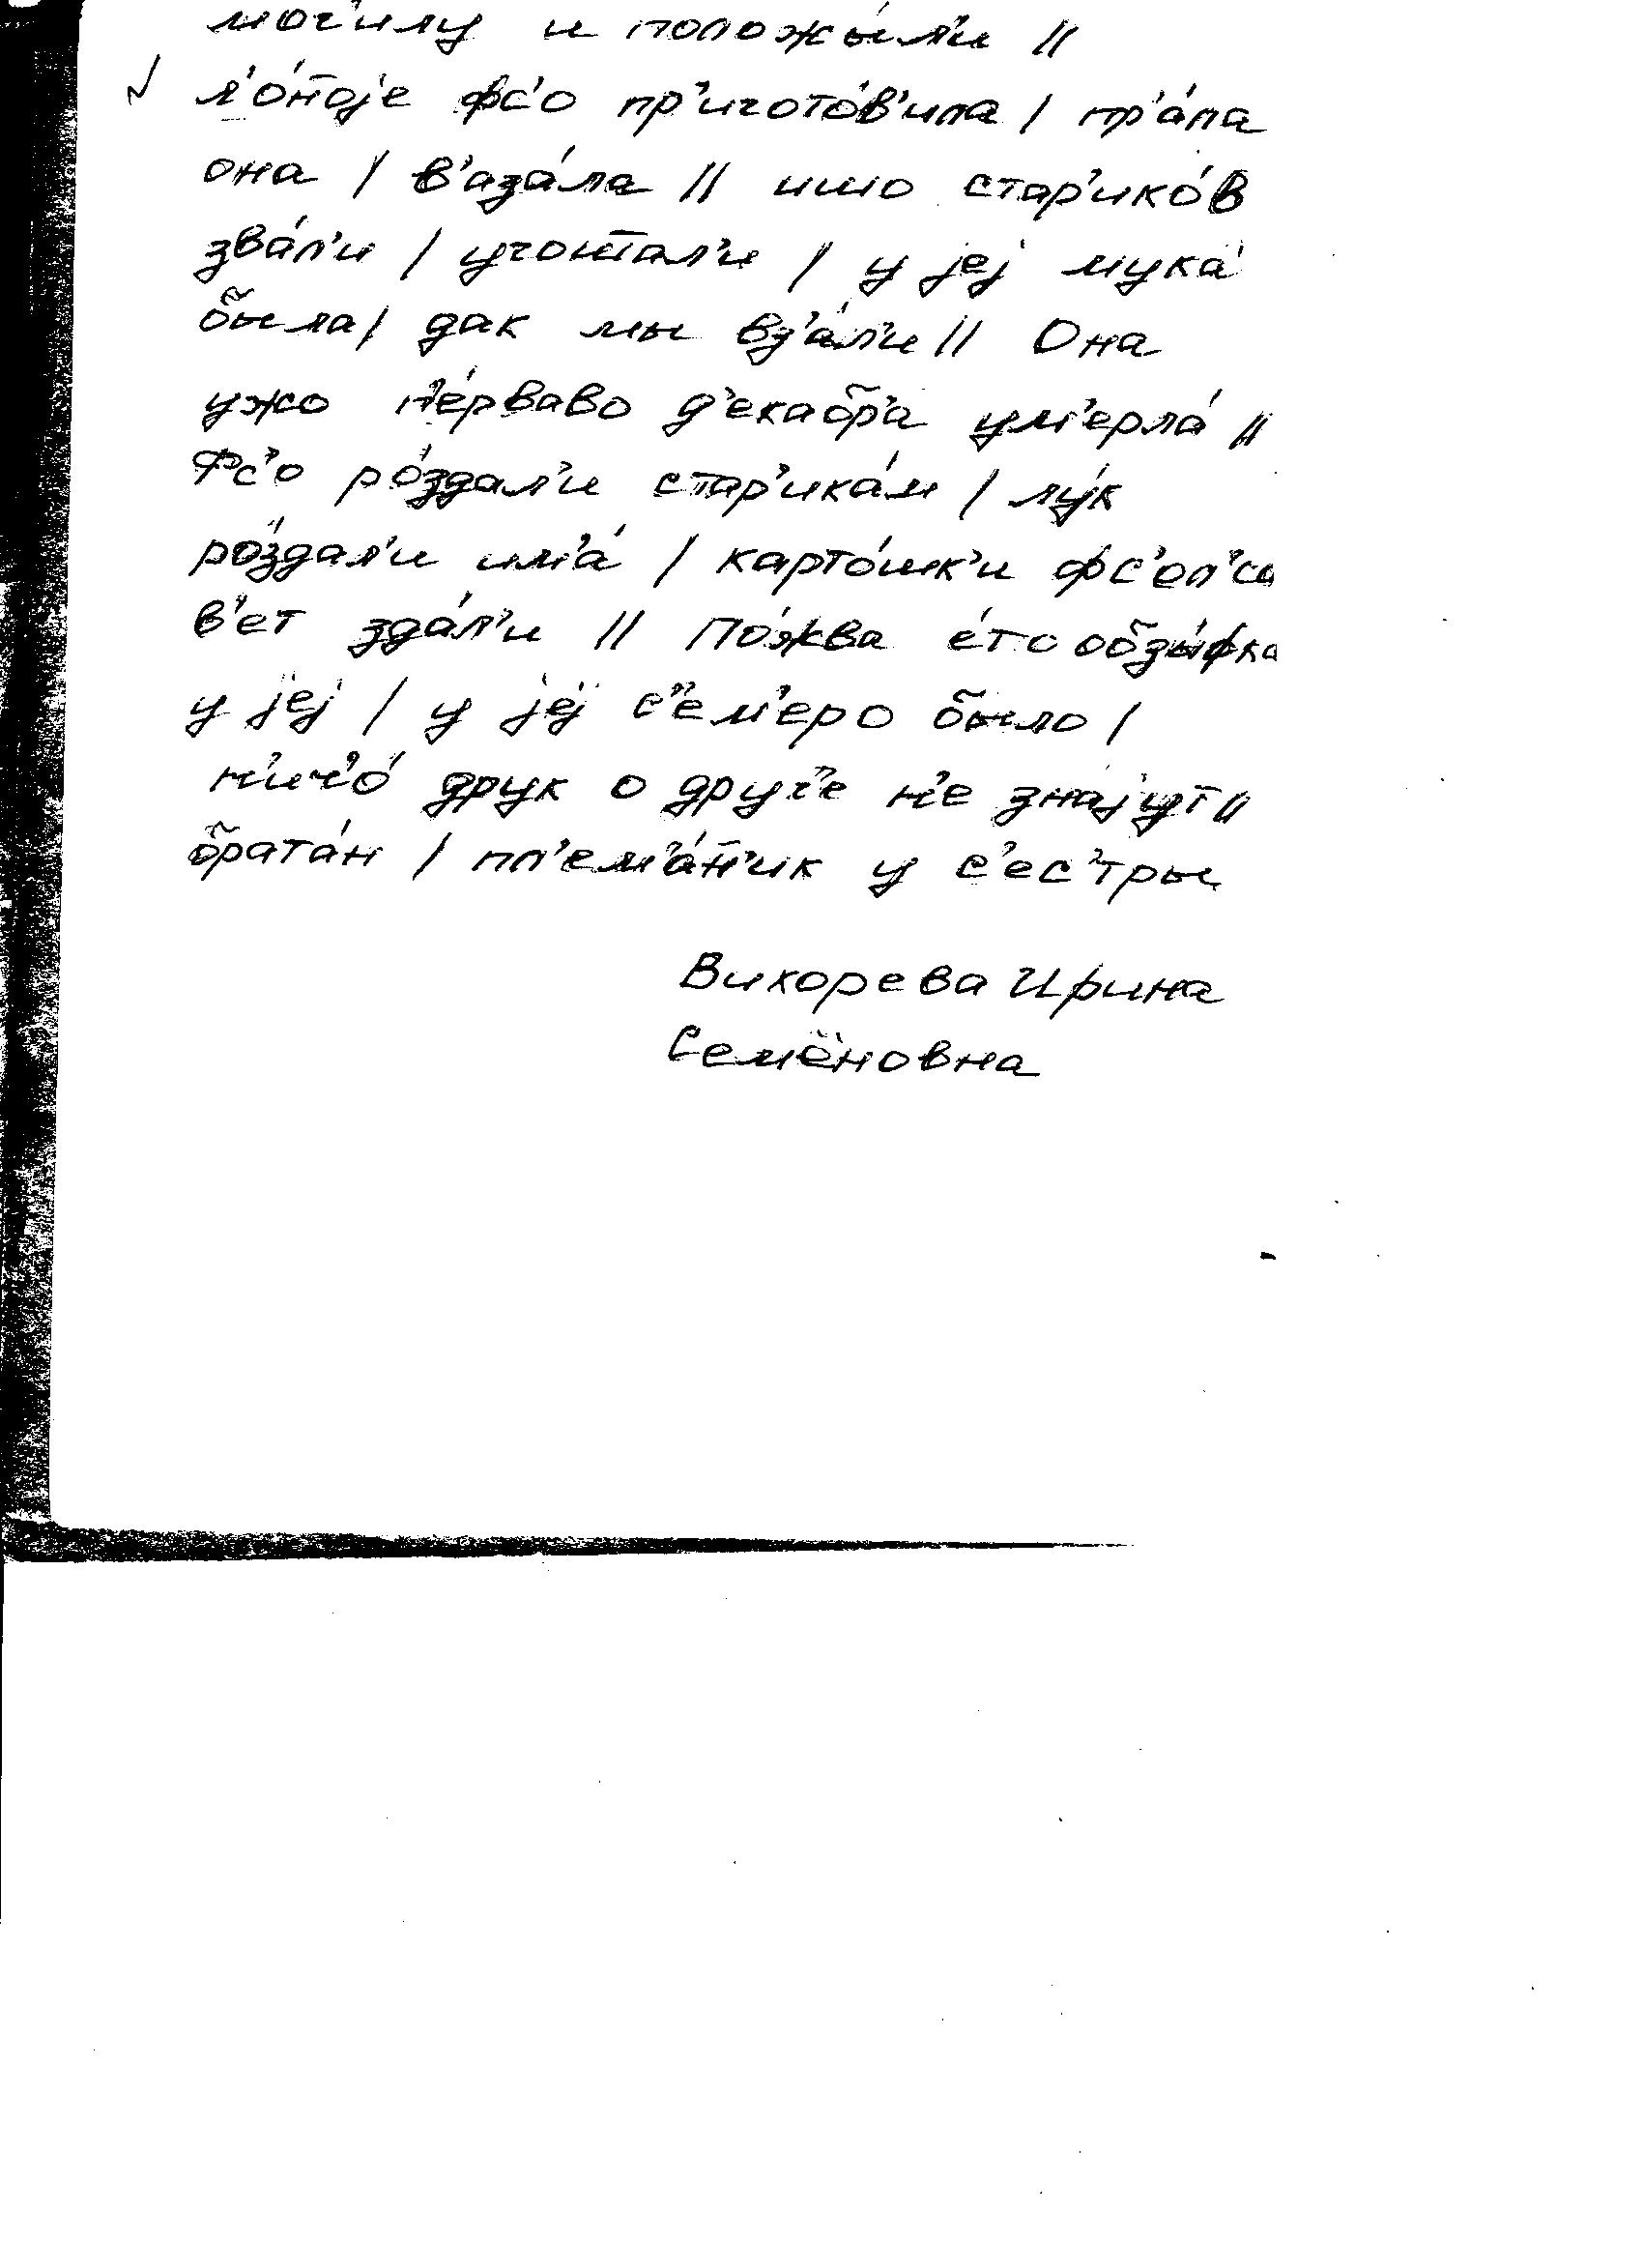 мог'илу и положы́л'и ||
л'о́н̄ојe фс'о пр'игото́в'ила | пр'а́ла
она | в'аза́ла || ишо стар'ико́в
зва́л'и | угошшал'и | у јеј мука́
была | дак мы вз'а́л'и || Она
ужо п'е́рваво д'екабр'а ум'ерла́ ||
Фс'о ро́здал'и стар'ика́м | лу́к
ро́здал'и им'а́ | карто́шк'и ф с'ел'со
в'ет зда́л'и || По́жва е́то обзы́фка
у јеј | у јеј с'ем'еро было |
н'ич'о́ друк о друг'е н'е знајут ||
брата́н | пл'ем'а́н̄'ик у с'ес'тры
Вихорева Ирина
Семёновна